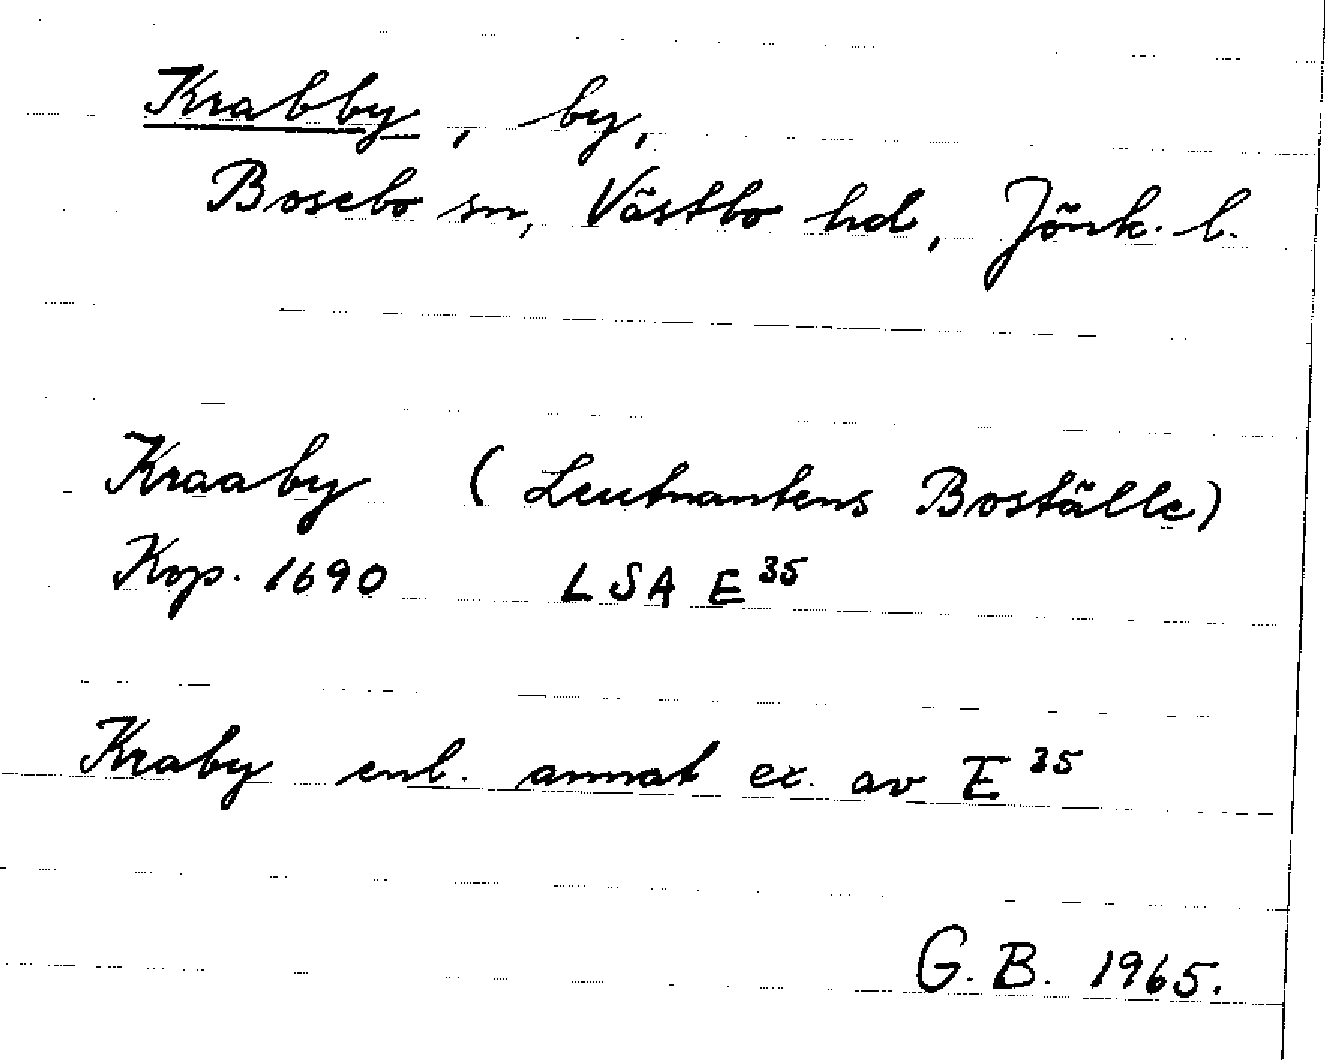 Krabby, by,
Bosebo sn, Västbo hd, Jönk. l.
Kraaby (Leutnantens Boställe)
Kop. 1690 LSA E 35
Kraby enl. annat ex. av E 35
G. B. 1965.